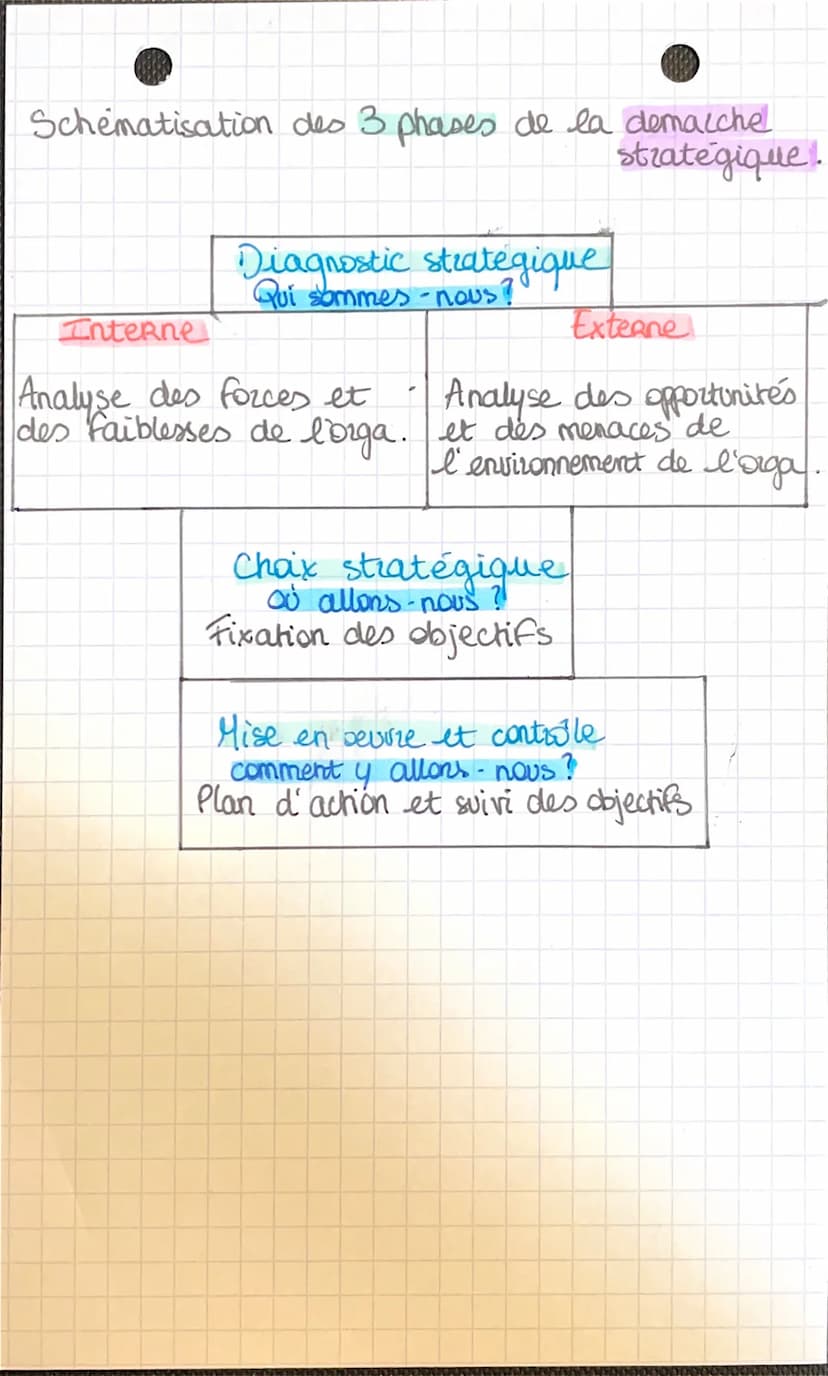 Schématisation des 3 phases de la démarche
stratégique.
Diagnostic stratégique
Qui sommes-nous?
Interne
Externe
Analyse des forces et
des faiblesses de l'orga.
Analyse des opportunités
et des menaces de
l'environnement de l'orga.
Choix stratégique
où allons-nous?
Fixation des objectifs
Mise en oeuvre et contrôle
comment y allons-nous?
Plan d'action et suivi des objectifs